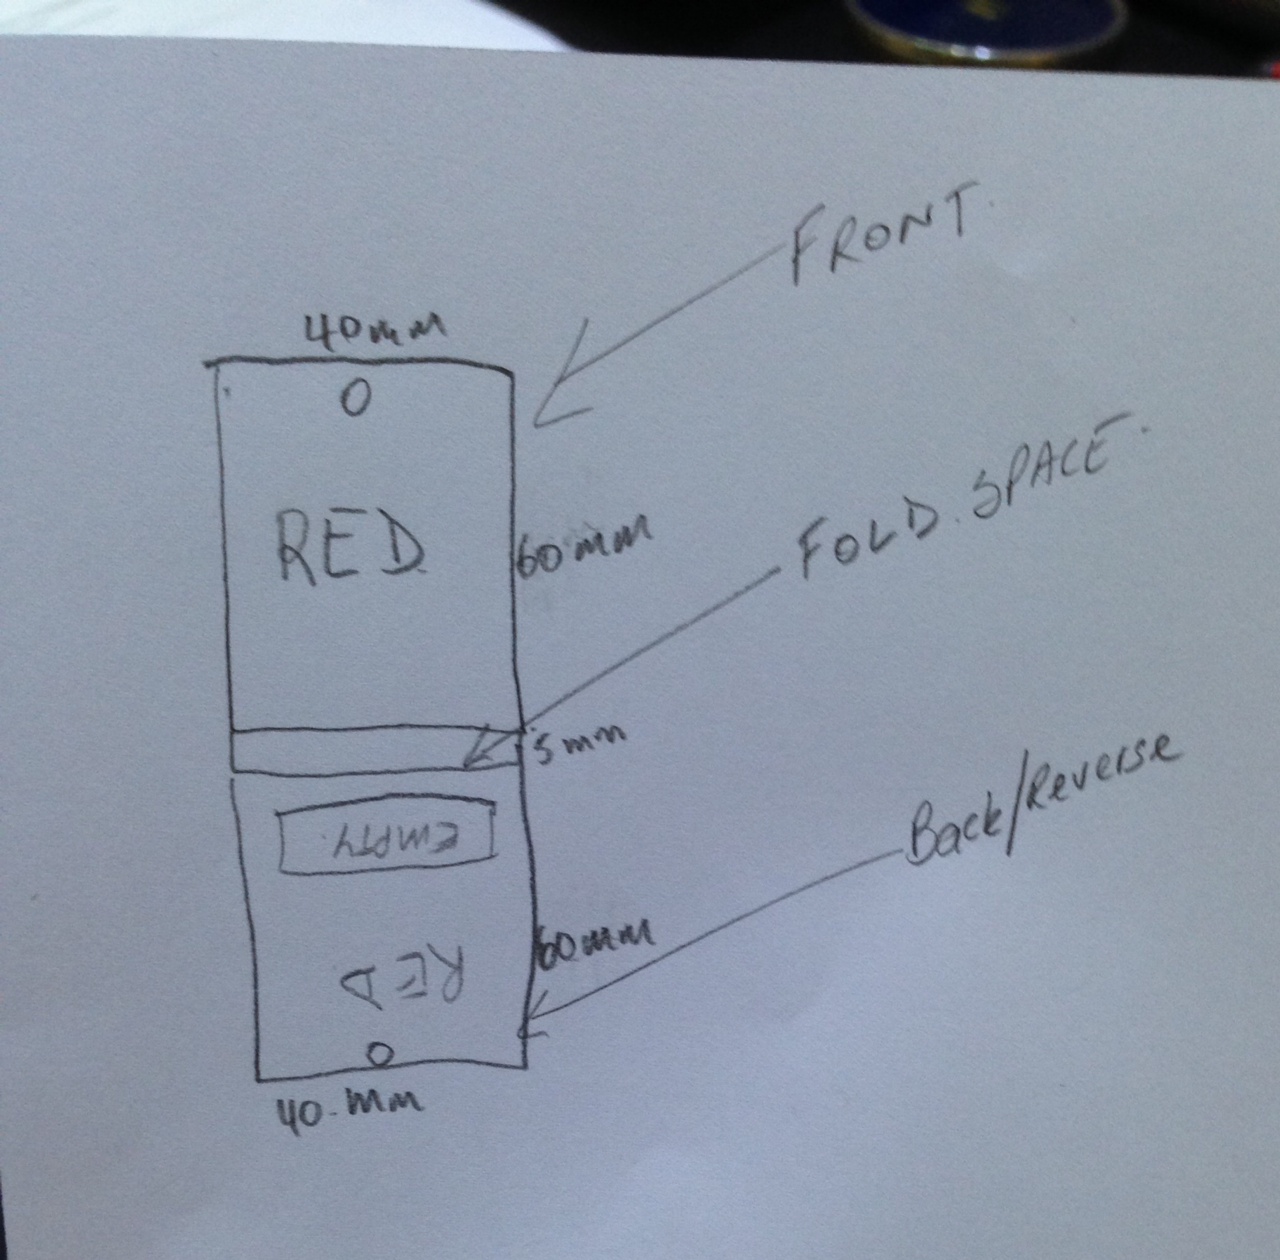 FRONT.
40mm
RED
60mm
FOLD. SPACE.
5mm
EMPTY.
Back/Reverse
60mm
RED
40.mm